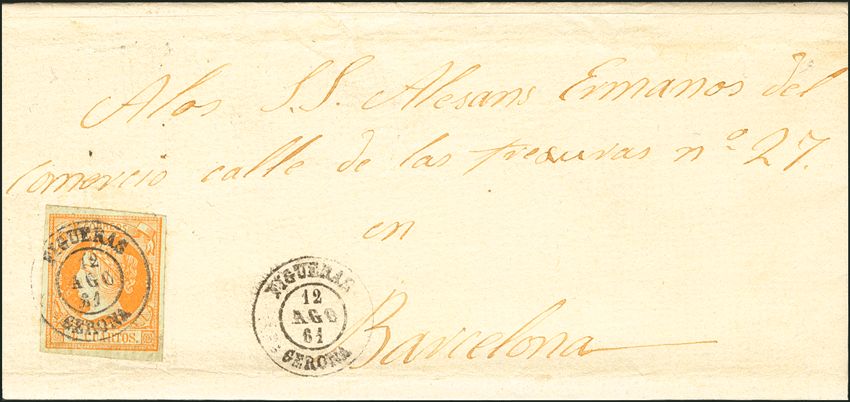 Alos S.S. Alesans Ermanos del
comercio calle de las tresuras nº 27.
en
Barcelona
FIGUERAS
12
AGO
61
GERONA
FIGUERAS
12
AGO
61
GERONA